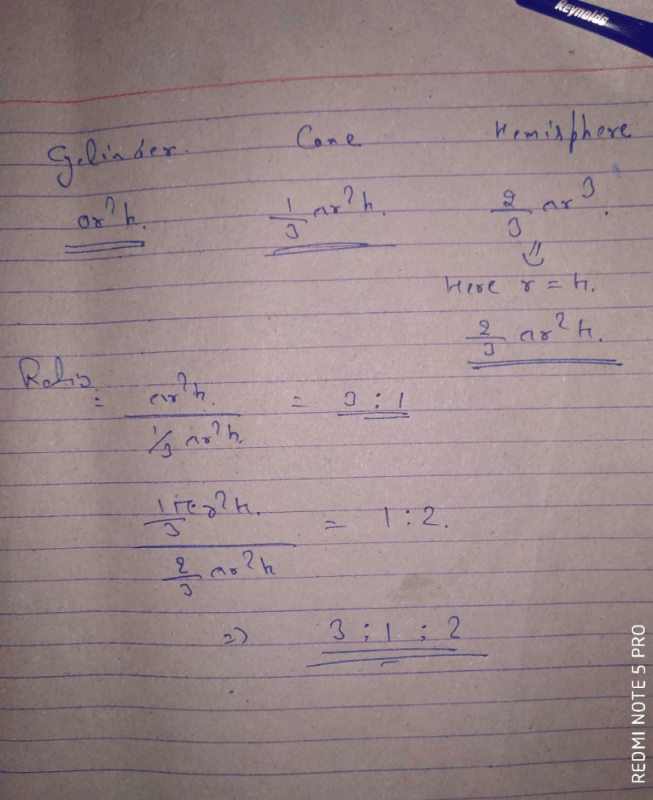 Reynolds
Cylinder. Cone Hemisphere
πr²h. 1/3 πr²h. 2/3 πr³.
⇓
Here r = h.
2/3 πr²h.
Ratio = πr²h. / 1/3 πr²h. = 3 : 1
1/3 πr²h. / 2/3 πr²h = 1 : 2.
=> 3 : 1 : 2
REDMI NOTE 5 PRO